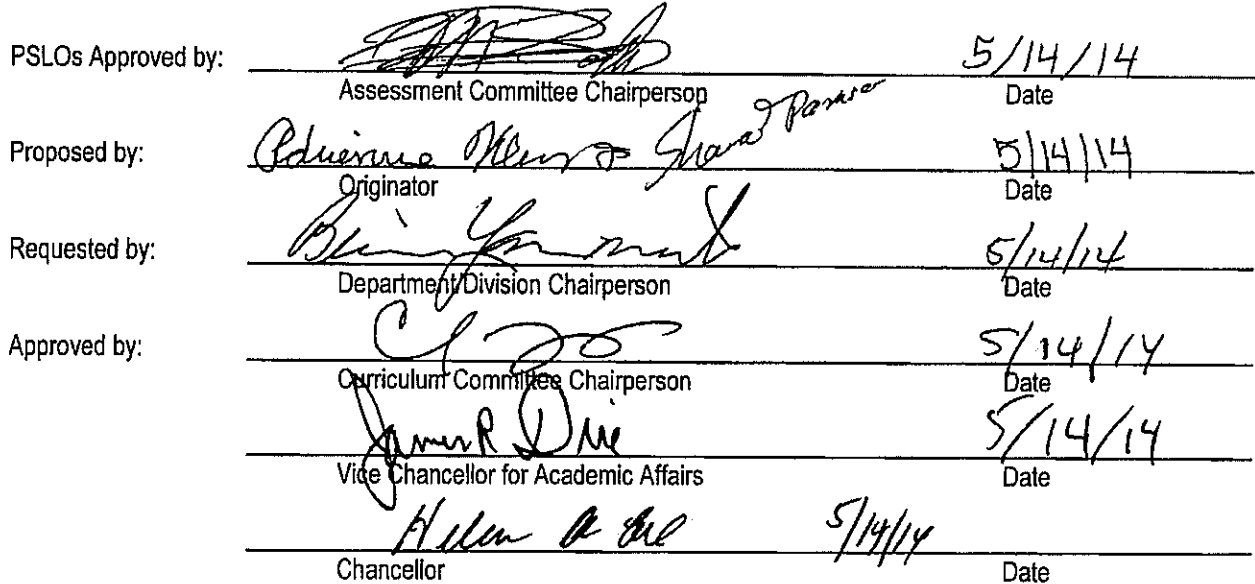 PSLOs Approved by: 5/14/14
Assessment Committee Chairperson Date
Proposed by: Adrienne 5/14/14
Originator Date
Requested by: 5/14/14
Department/Division Chairperson Date
Approved by: 5/14/14
Curriculum Committee Chairperson Date
James R 5/14/14
Vice Chancellor for Academic Affairs Date
Helen 5/14/14
Chancellor Date